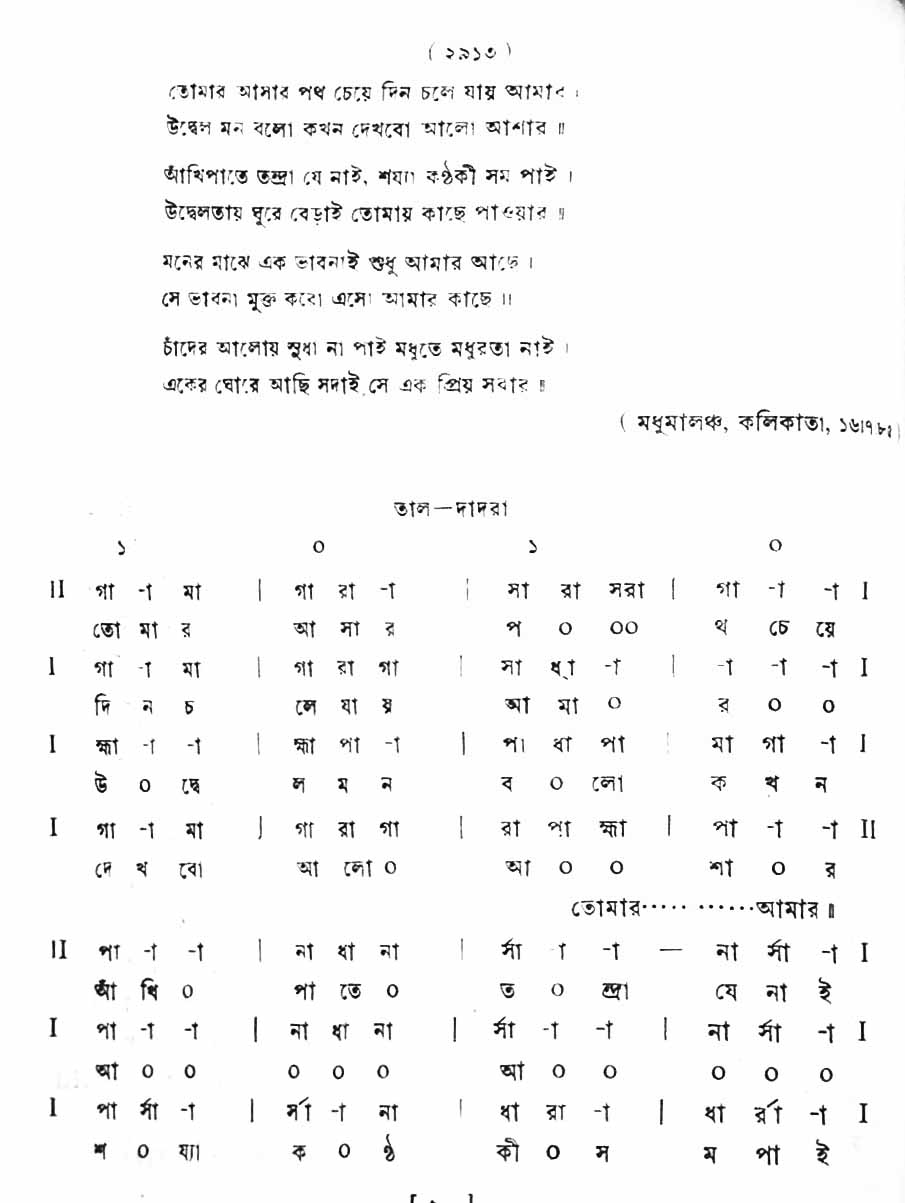 ( ২৯১৩ )
তোমার আসার পথ চেয়ে দিন চলে যায় আমার ।
উদ্বেল মন বলো কখন দেখবো আলো আশার ॥
আঁখিপাতে তন্দ্রা যে নাই, শয্যা কণ্ঠকী সম পাই ।
উদ্বেলতায় ঘুরে বেড়াই তোমায় কাছে পাওয়ার ॥
মনের মাঝে এক ভাবনাই শুধু আমার আছে ।
সে ভাবনা মুক্ত করো এসো আমার কাছে ॥
চাঁদের আলোয় সুধা না পাই মধুতে মধুরতা নাই ।
একের ঘোরে আছি সদাই সে এক প্রিয় সবার ॥
( মধুমালঞ্চ, কলিকাতা,
তাল—দাদরা
১ ০ ১ ০
II গা -া মা | গা রা -া | সা রা সরা | গা -া -া I
তো মা র আ সা র প ০ ০০ থ চে য়ে
I গা -া মা | গা রা গা | সা ধ্া -া | -া -া -া I
দি ন চ লে যা য় আ মা ০ র ০ ০
I হ্মা -া -া | হ্মা পা -া | পা ধা পা | মা গা -া I
উ ০ দ্বে ল ম ন ব ০ লো ক খ ন
I গা -া মা | গা রা গা | রা পা হ্মা | পা -া -া II
দে খ বো আ লো ০ আ ০ ০ শা ০ র
তোমার···········আমার ॥
II পা -া -া | না ধা না | র্সা -া -া — না র্সা -া I
আঁ খি ০ পা তে ০ ত ০ ন্দ্রা যে না ই
I পা -া -া | না ধা না | র্সা -া -া | না র্সা -া I
আ ০ ০ ০ ০ ০ আ ০ ০ ০ ০ ০
I পা র্সা -া | র্সা -া না | ধা রা -া | ধা র্রা -া I
শ ০ য্যা ক ০ ণ্ঠ কী ০ স ম পা ই